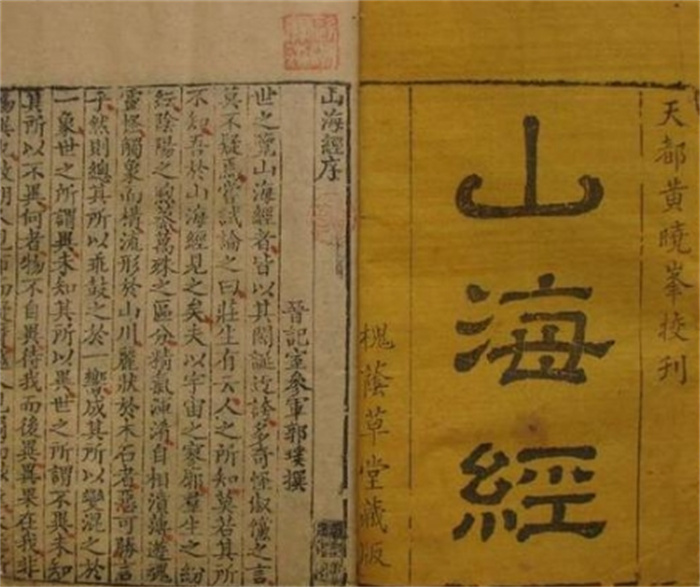 天都黃曉峯挍刊
山海經
槐蔭草堂藏版
山海經序
晉記室參軍郭璞撰
世之覽山海經者皆以其閎誕迂誇多奇怪俶儻之言
莫不疑焉嘗試論之曰莊生有云人之所知莫若其所
不知吾於山海經見之矣夫以宇宙之寥廓羣生之紛
紜陰陽之煦蒸萬殊之區分精氣渾淆自相濆薄遊魂
靈怪觸象而構流形於山川麗狀於木石者惡可勝言
乎然則總其所以乖鼓之於一響成其所以變混之於
一象世之所謂異未知其所以異世之所謂不異未知
其所以不異何者物不自異待我而後異異果在我非